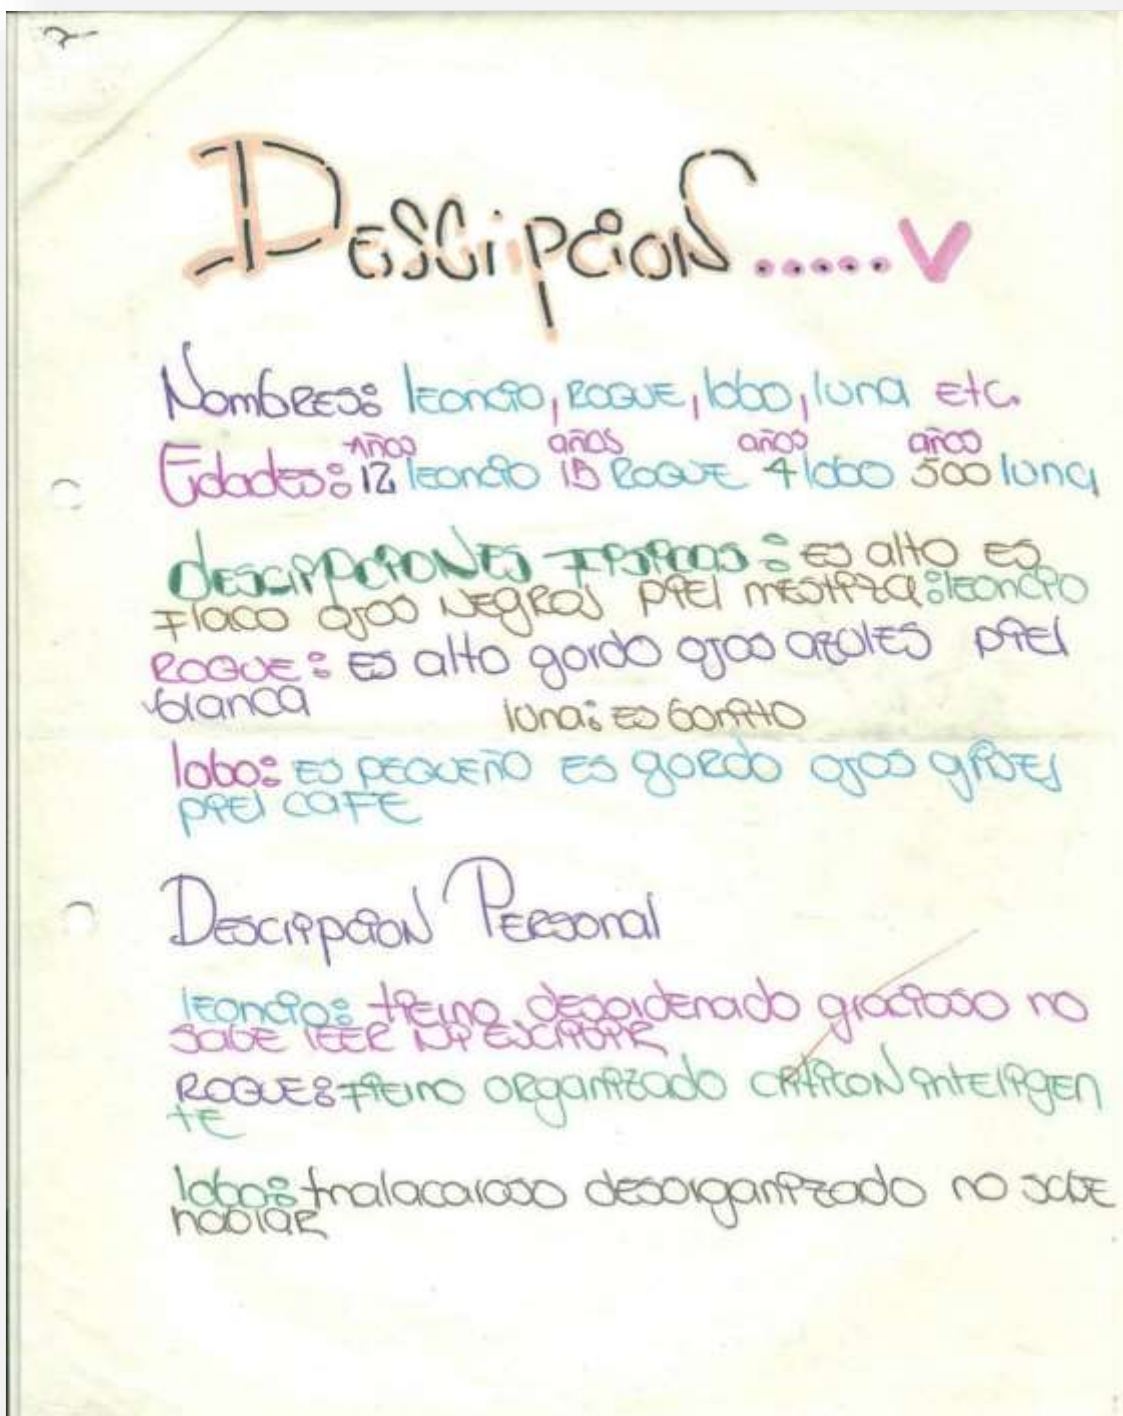 Descipcion.....
Nombres: leoncio, Roque, lobo, luna etc.
Años años años años
Edades: 12 leoncio 15 Roque 4 lobo 500 luna
descipciones Fisicas: es alto es
Flaco ojos negros piel mestiza: leoncio
Roque: es alto gordo ojos azules piel
blanca luna: es bonito
lobo: es pequeño es gordo ojos grises
piel cafe
Descripcion Personal
leoncio: desordenado gracioso no
sabe leer ni escribir
Roque: organizado criticon inteligen
te
lobo: malacaroso desorganizado no sabe
hablar